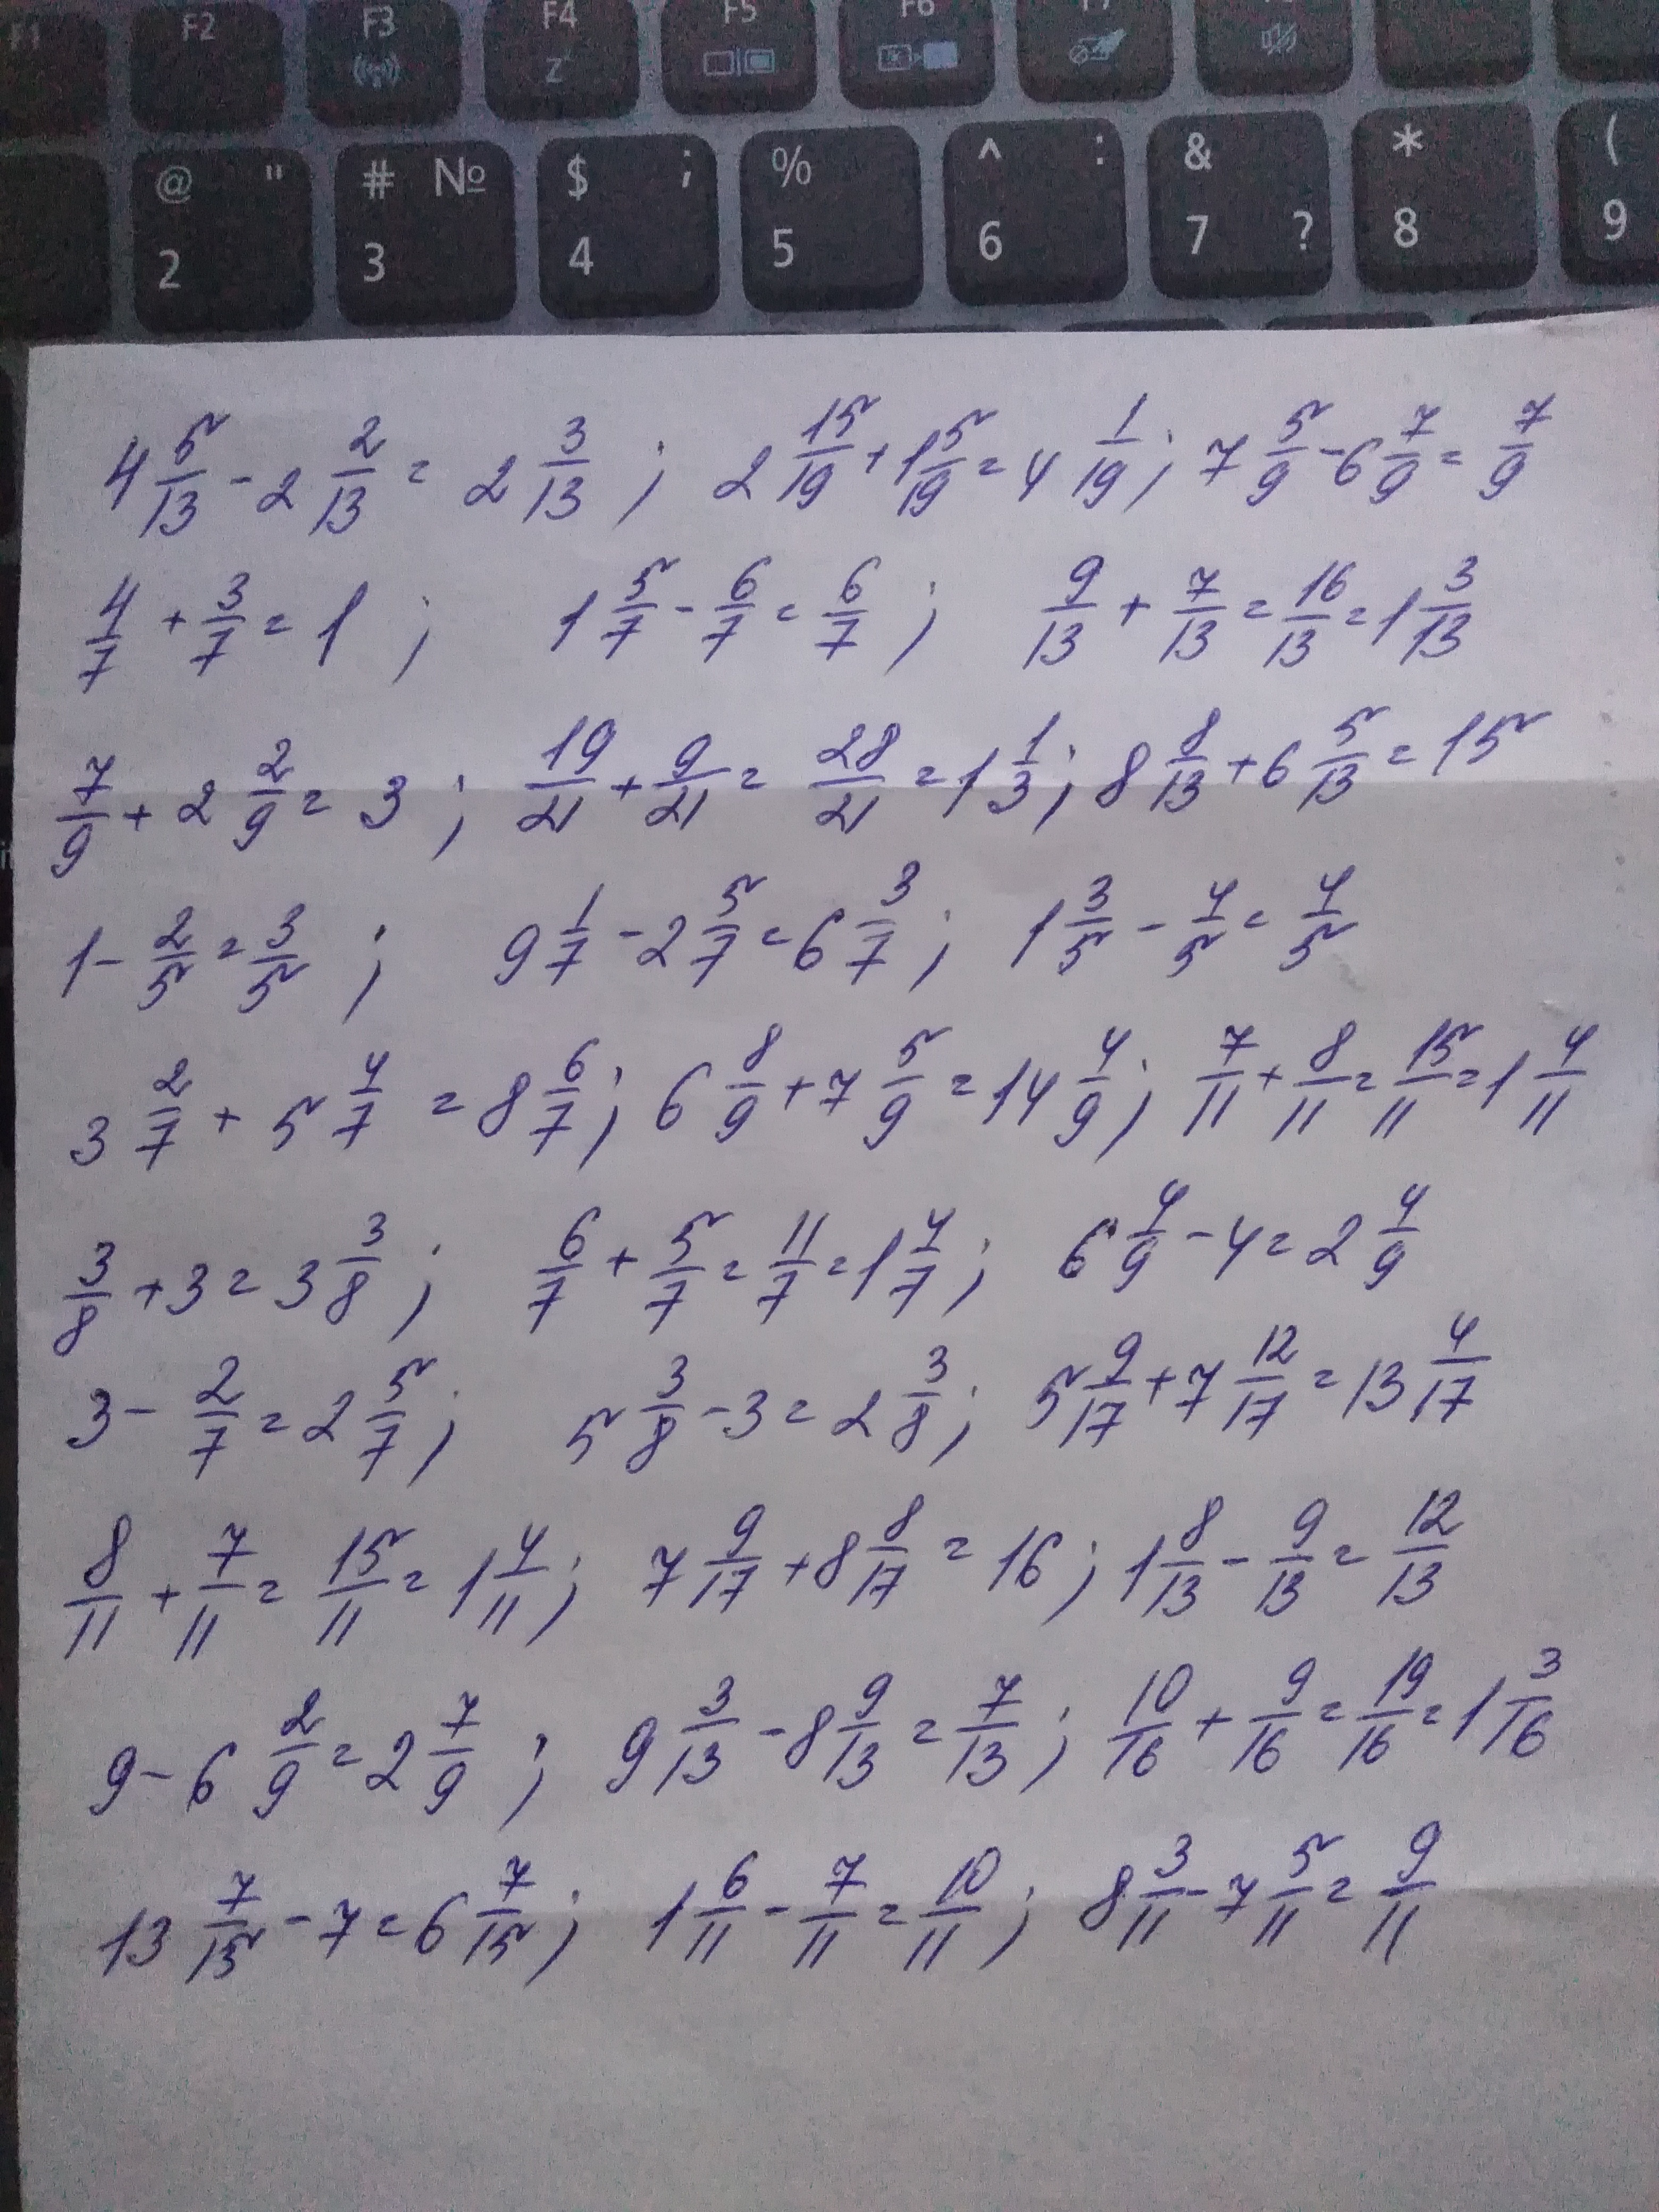 F1 F2 F3 F4 F5 F6 F7
Z
@ " # № $ ; % ^ : & * (
2 3 4 5 6 7 ? 8 9
4 5/13 - 2 2/13 = 2 3/13 ; 2 15/19 + 1 5/19 = 4 1/19 ; 7 5/9 - 6 7/9 = 7/9
4/7 + 3/7 = 1 ; 1 5/7 - 6/7 = 6/7 ; 9/13 + 7/13 = 16/13 = 1 3/13
7/9 + 2 2/9 = 3 ; 19/21 + 9/21 = 28/21 = 1 1/3 ; 8 8/13 + 6 5/13 = 15
1 - 2/5 = 3/5 ; 9 1/7 - 2 5/7 = 6 3/7 ; 1 3/5 - 4/5 = 4/5
3 2/7 + 5 4/7 = 8 6/7 ; 6 8/9 + 7 5/9 = 14 4/9 ; 7/11 + 8/11 = 15/11 = 1 4/11
3/8 + 3 = 3 3/8 ; 6/7 + 5/7 = 11/7 = 1 4/7 ; 6 4/9 - 4 = 2 4/9
3 - 2/7 = 2 5/7 ; 5 3/8 - 3 = 2 3/8 ; 5 9/17 + 7 12/17 = 13 4/17
8/11 + 7/11 = 15/11 = 1 4/11 ; 7 9/17 + 8 8/17 = 16 ; 1 8/13 - 9/13 = 12/13
9 - 6 2/9 = 2 7/9 ; 9 3/13 - 8 9/13 = 7/13 ; 10/16 + 9/16 = 19/16 = 1 3/16
13 7/15 - 7 = 6 7/15 ; 1 6/11 - 7/11 = 10/11 ; 8 3/11 - 7 5/11 = 9/11